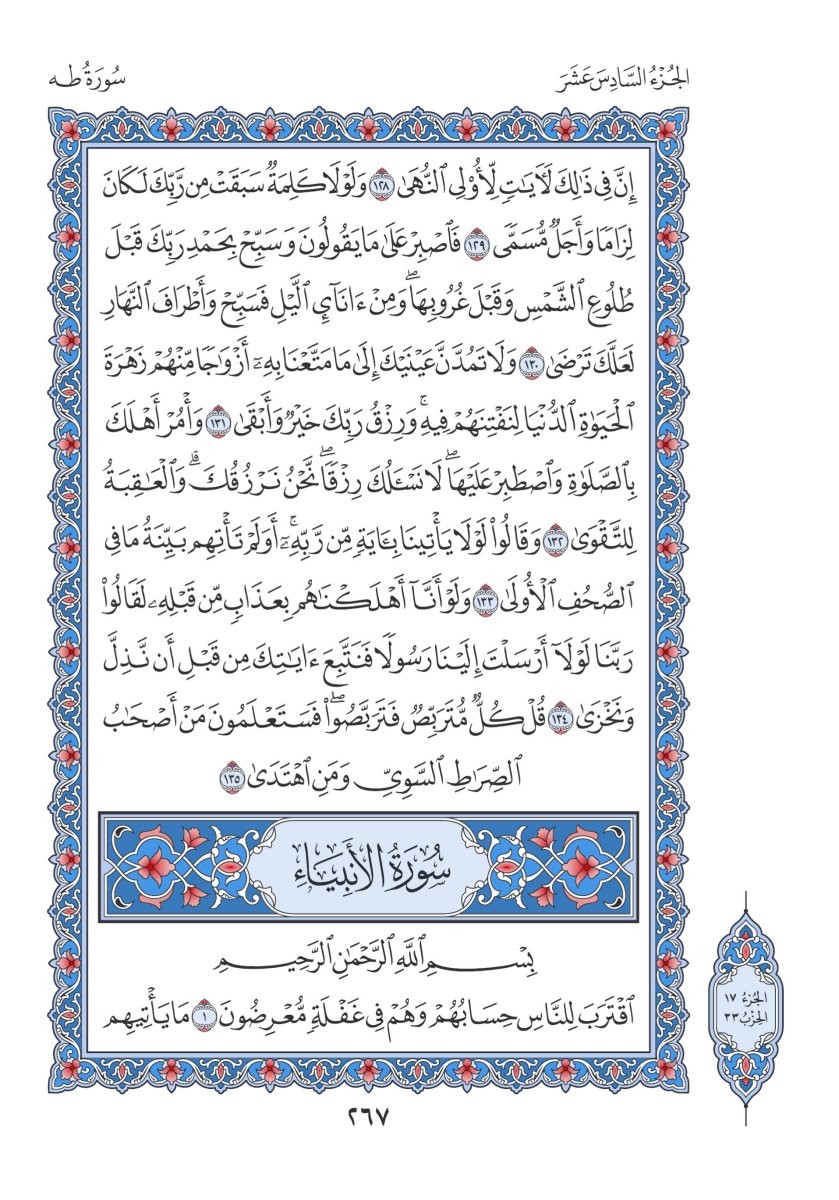 الجُزْءُ السَّادِسَ عَشَرَ
سُورَةُ طه
إِنَّ فِي ذَٰلِكَ لَأٓيَٰتٖ لِّأُوْلِي ٱلنُّهَىٰ ١٢٨ وَلَوۡلَا كَلِمَةٞ سَبَقَتۡ مِن رَّبِّكَ لَكَانَ
لِزَامٗا وَأَجَلٞ مُّسَمّٗى ١٢٩ فَٱصۡبِرۡ عَلَىٰ مَا يَقُولُونَ وَسَبِّحۡ بِحَمۡدِ رَبِّكَ قَبۡلَ
طُلُوعِ ٱلشَّمۡسِ وَقَبۡلَ غُرُوبِهَاۖ وَمِنۡ ءَانَآيِٕ ٱلَّيۡلِ فَسَبِّحۡ وَأَطۡرَافَ ٱلنَّهَارِ
لَعَلَّكَ تَرۡضَىٰ ١٣٠ وَلَا تَمُدَّنَّ عَيۡنَيۡكَ إِلَىٰ مَا مَتَّعۡنَا بِهِۦٓ أَزۡوَٰجٗا مِّنۡهُمۡ زَهۡرَةَ
ٱلۡحَيَوٰةِ ٱلدُّنۡيَا لِنَفۡتِنَهُمۡ فِيهِۚ وَرِزۡقُ رَبِّكَ خَيۡرٞ وَأَبۡقَىٰ ١٣١ وَأۡمُرۡ أَهۡلَكَ
بِٱلصَّلَوٰةِ وَٱصۡطَبِرۡ عَلَيۡهَاۖ لَا نَسۡـَٔلُكَ رِزۡقٗاۖ نَّحۡنُ نَرۡزُقُكَۗ وَٱلۡعَٰقِبَةُ
لِلتَّقۡوَىٰ ١٣٢ وَقَالُواْ لَوۡلَا يَأۡتِينَا بِـَٔايَةٖ مِّن رَّبِّهِۦٓۚ أَوَلَمۡ تَأۡتِهِم بَيِّنَةُ مَا فِي
ٱلصُّحُفِ ٱلۡأُولَىٰ ١٣٣ وَلَوۡ أَنَّآ أَهۡلَكۡنَٰهُم بِعَذَابٖ مِّن قَبۡلِهِۦ لَقَالُواْ
رَبَّنَا لَوۡلَآ أَرۡسَلۡتَ إِلَيۡنَا رَسُولٗا فَنَتَّبِعَ ءَايَٰتِكَ مِن قَبۡلِ أَن نَّذِلَّ
وَنَخۡزَىٰ ١٣٤ قُلۡ كُلّٞ مُّتَرَبِّصٞ فَتَرَبَّصُواْۖ فَسَتَعۡلَمُونَ مَنۡ أَصۡحَٰبُ
ٱلصِّرَٰطِ ٱلسَّوِيِّ وَمَنِ ٱهۡتَدَىٰ ١٣٥
سُورَةُ الأَنبِيَاءِ
بِسۡمِ ٱللَّهِ ٱلرَّحۡمَٰنِ ٱلرَّحِيمِ
ٱقۡتَرَبَ لِلنَّاسِ حِسَابُهُمۡ وَهُمۡ فِي غَفۡلَةٖ مُّعۡرِضُونَ ١ مَا يَأۡتِيهِم
الجُزءُ ١٧
الحِزْبُ ٣٣
٢٦٧